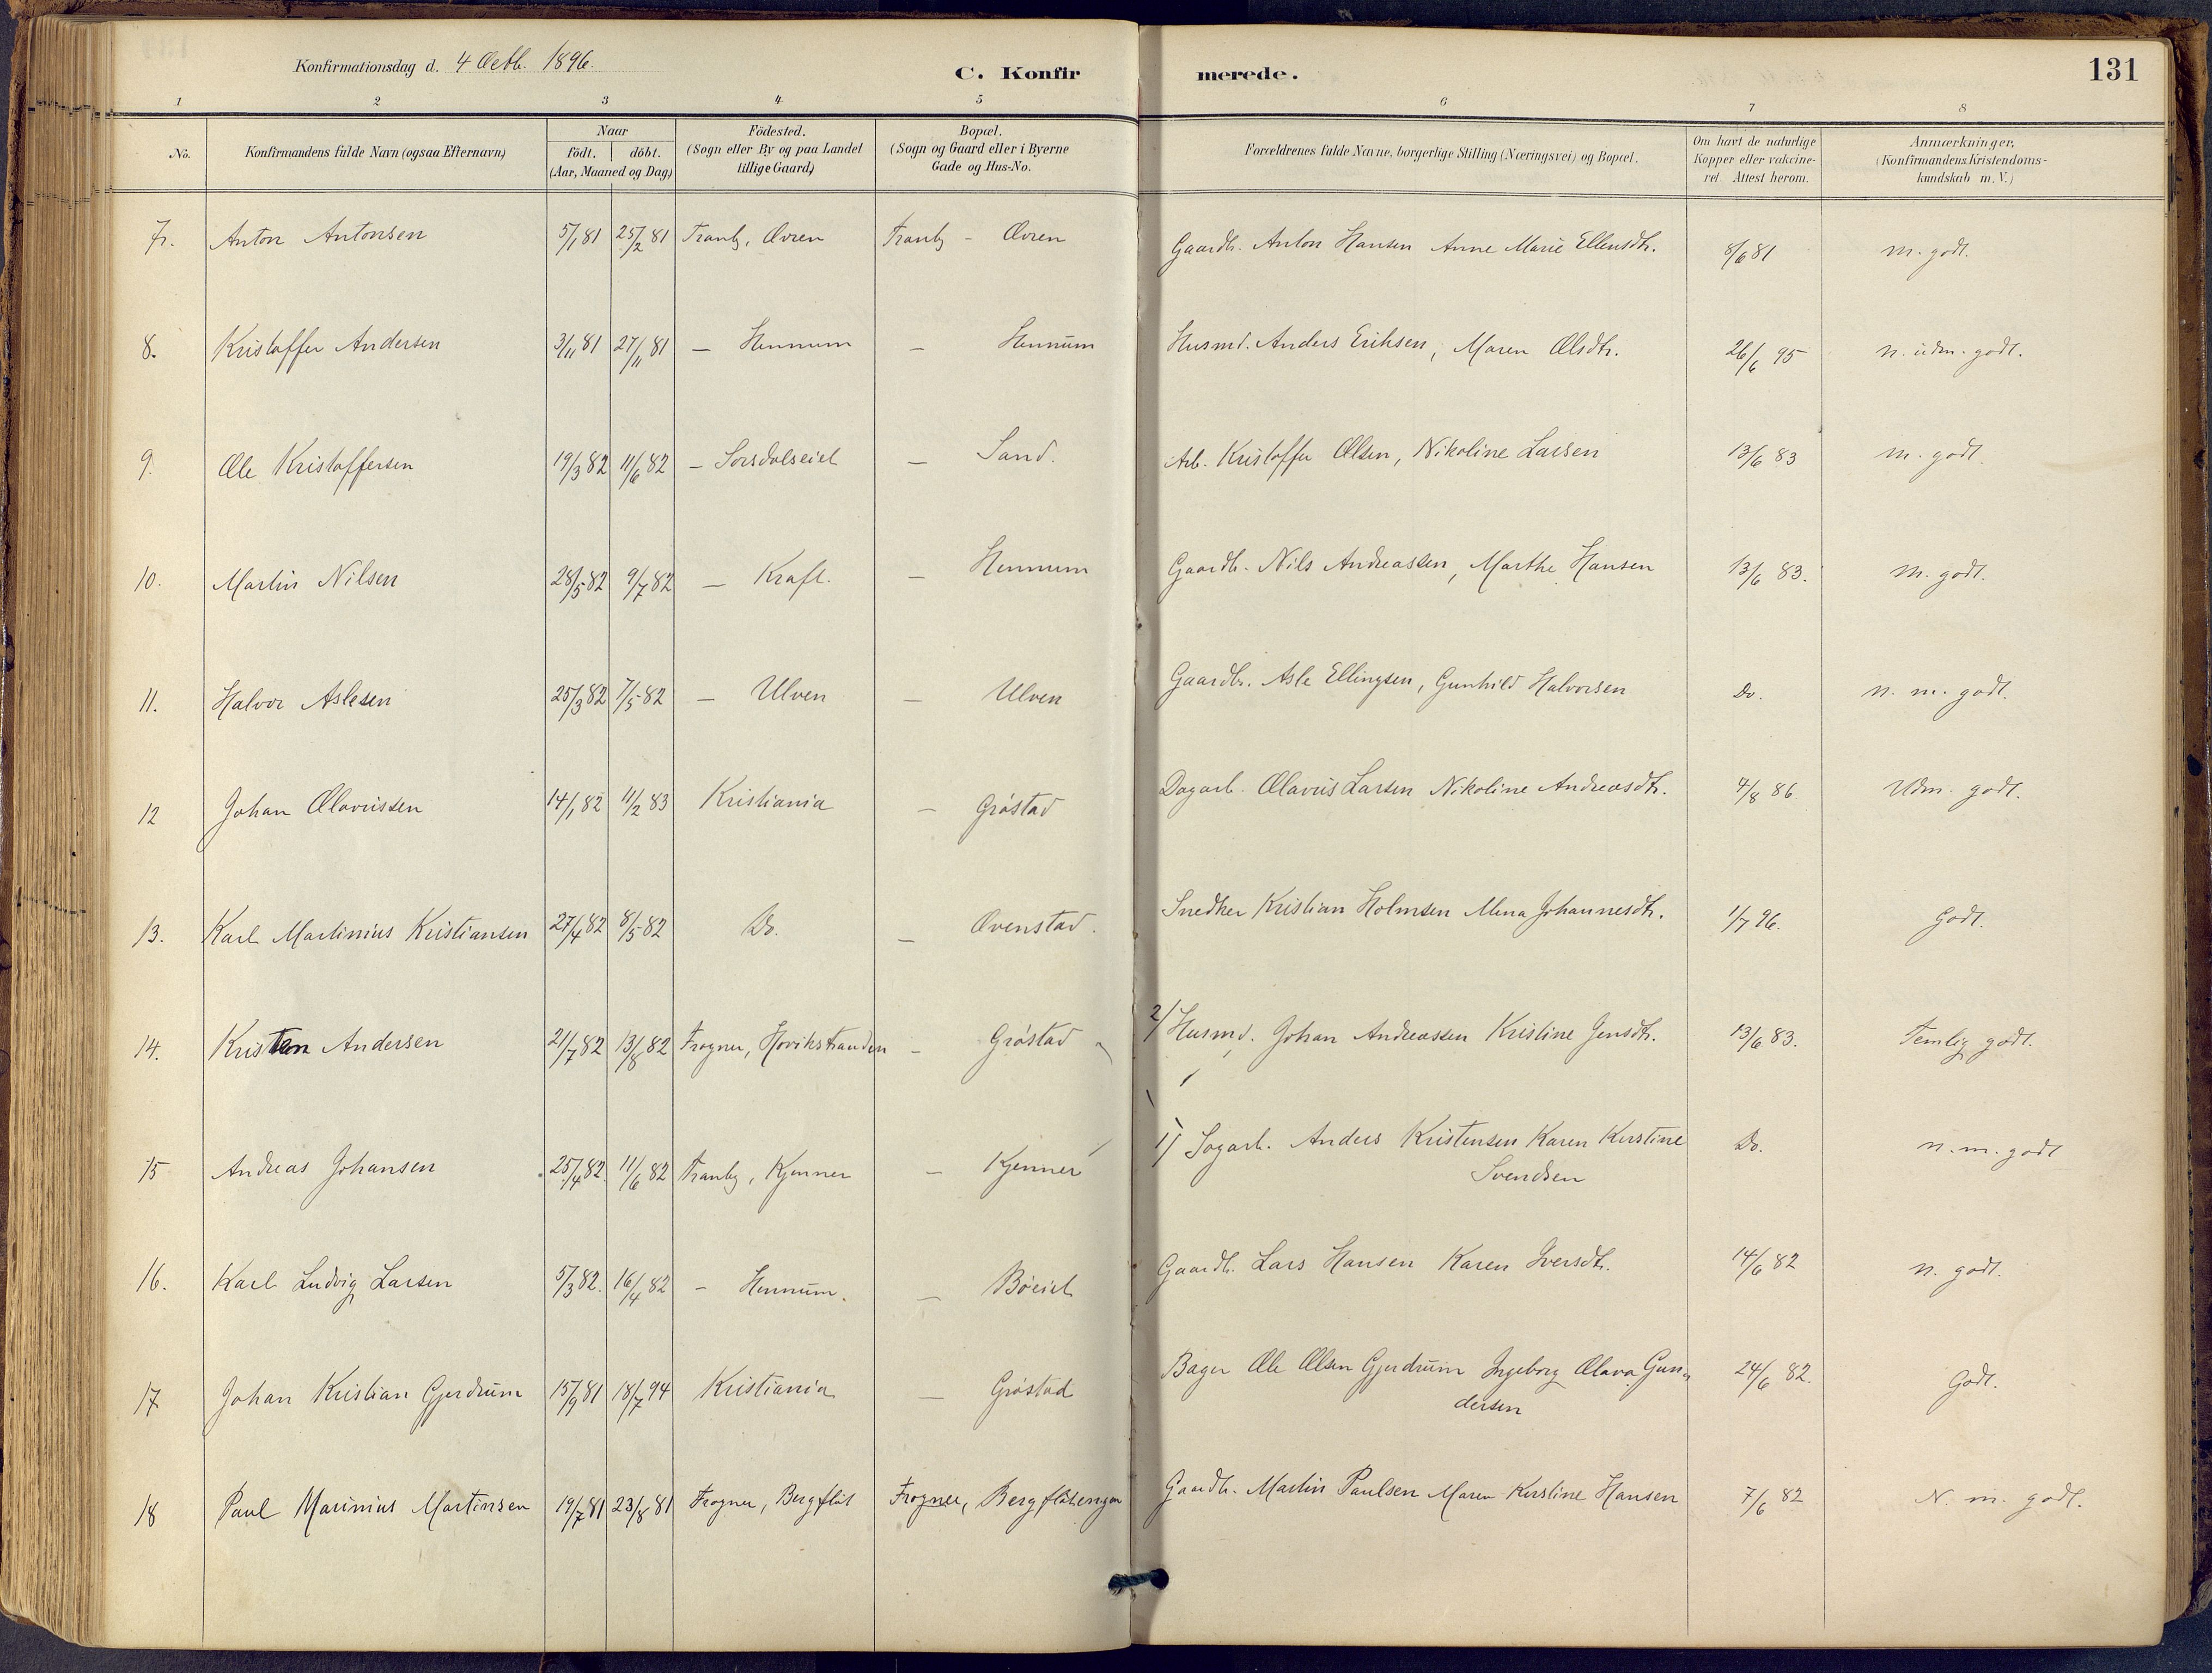 Konfirmationsdag d. 4 Octb. 1896.
C. Konfirmerede.
131
1 2 3 4 5 6 7 8
No.
Konfirmandens fulde Navn (ogsaa Efternavn)
Naar
födt. döbt.
(Aar, Maaned og Dag)
Födested.
(Sogn eller By og paa Landet
tillige Gaard)
Bopæl.
(Sogn og Gaard eller i Byerne
Gade og Hus-No.
Forældrenes fulde Navne, borgerlige Stilling (Næringsvei) og Bopæl.
Om havt de naturlige
Kopper eller vakcine-
ret. Attest herom.
Anmærkninger,
(Konfirmandens Kristendoms-
kundskab m. V.)
7. Anton Antonsen 5/1 81 25/2 81 Tranby, Øvren Tranby - Øvren Gaardb. Anton Hansen Anne Marie Ellensdtr. 8/6 81 m. godt.
8. Kristoffer Andersen 3/11 81 27/11 81 — Hennum — Hennum Husmd. Anders Eriksen, Maren Olsdtr. 26/6 95 n. udm. godt.
9. Ole Kristoffersen 19/3 82 11/6 82 — Sorsdalseiet — Sand. Arb. Kristoffer Olsen, Nikoline Larsen 13/6 83 m. godt.
10. Martin Nilsen 28/5 82 9/7 82 — Kraft. — Hennum Gaardb. Nils Andreassen, Marthe Hansen 13/6 83. m. godt.
11. Halvor Aslesen 25/3 82 7/5 82 — Ulven — Ulven Gaardbr. Asle Ellingsen, Gunhild Halvorsen Do. n. m. godt.
12 Johan Olavussen 14/1 82 11/2 83 Kristiania — Gröstad Dagarb. Olavus Larsen Nikoline Andreasdtr. 4/8 86 Udm. godt.
13. Karl Martinius Kristiansen 27/4 82 8/5 82 Do. — Ovenstad. Snedker Kristian Holmsen Mena Johannesdtr. 1/7 96. Godt.
14. Kristen Andersen 21/7 82 13/8 82 Frogner, Hovikstranden — Gröstad 2/ Husmd. Johan Andreassen Kristine Jensdtr. 13/6 83. Temlig godt.
15 Andreas Johansen 25/4 82. 11/6 82 Tranby, Kjenner — Kjenner 1/ Sagarb. Anders Kristensen Karen Kirstine Do. n. m. godt
Svendsen
16. Karl Ludvig Larsen 5/3 82. 16/4 82 — Hennum. — Böeiet Gaardb. Lars Hansen Karen Iversdtr. 14/6 82 n. godt.
17 Johan Kristian Gjerdrum 15/9 81 18/7 94 Kristiania — Gröstad Bager Ole Olsen Gjerdrum Ingeborg Olava Gun- 24/6 82. Godt.
dersen
18 Paul Marinius Martinsen 19/7 81 23/8 81 Frogner, Bergflöt Frogner, Bergflötengen Gaardb. Martin Paulsen Maren Kirstine Hansen 7/6 82 N. m. godt.